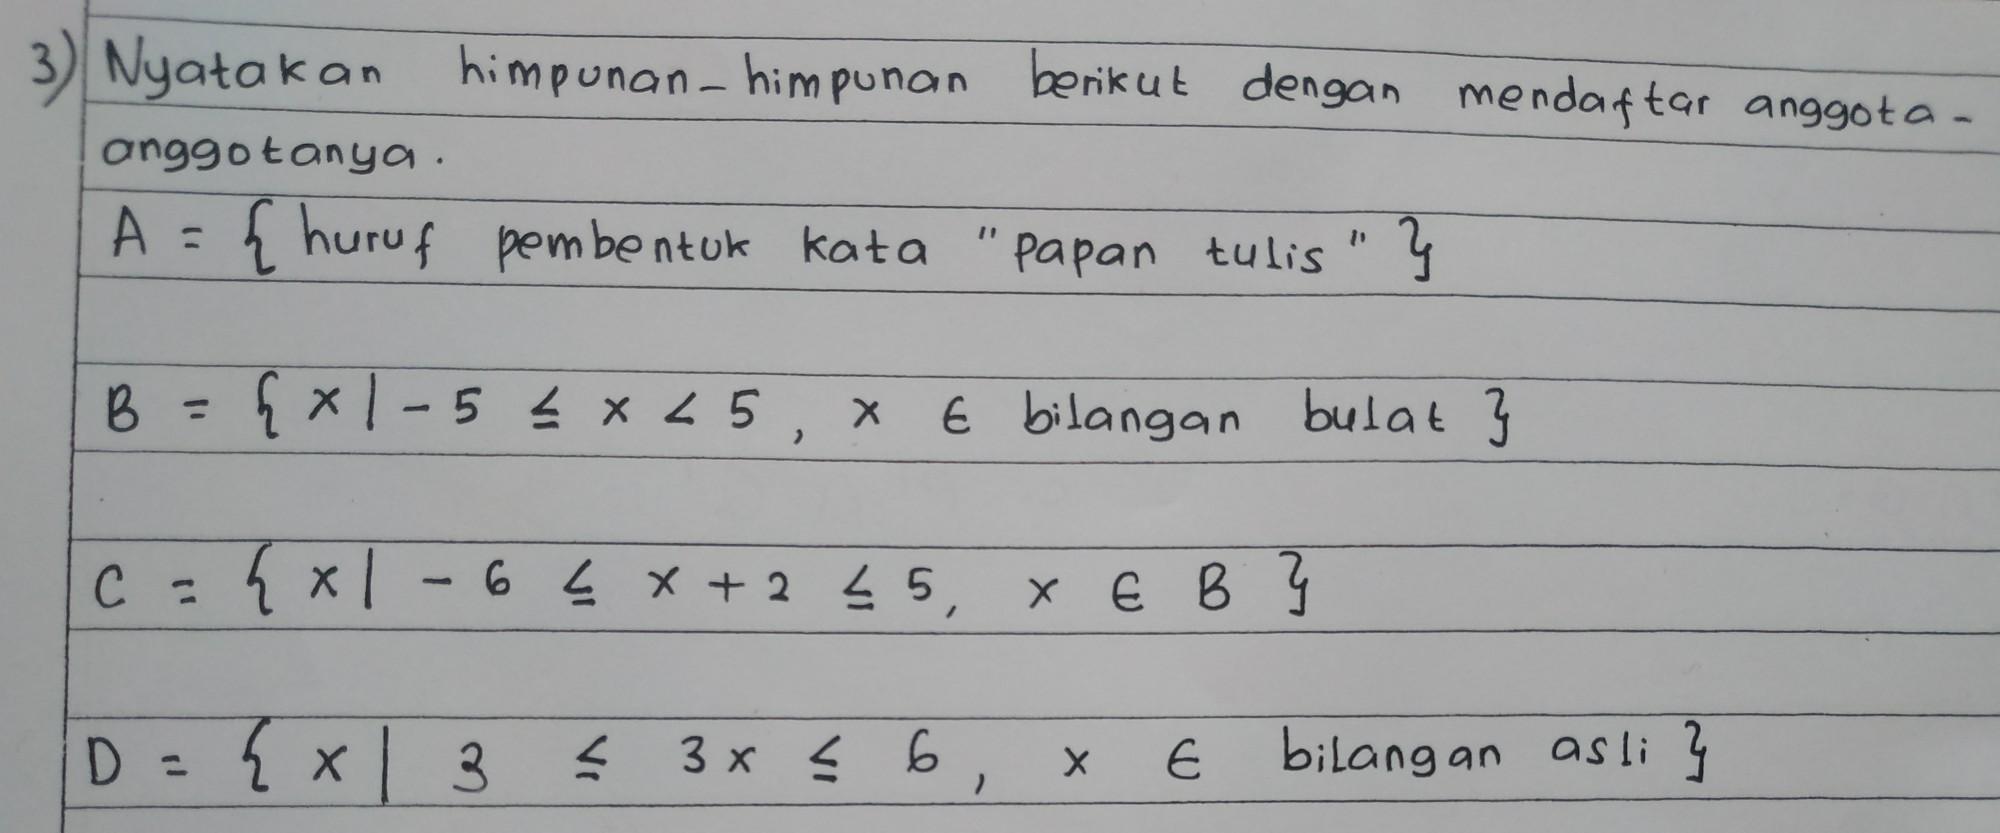 3) Nyatakan himpunan-himpunan berikut dengan mendaftar anggota-
anggotanya.
A = { huruf pembentuk kata "papan tulis" }
B = { x | -5 ≤ x < 5, x ∈ bilangan bulat }
C = { x | -6 ≤ x + 2 ≤ 5, x ∈ B }
D = { x | 3 ≤ 3x ≤ 6, x ∈ bilangan asli }